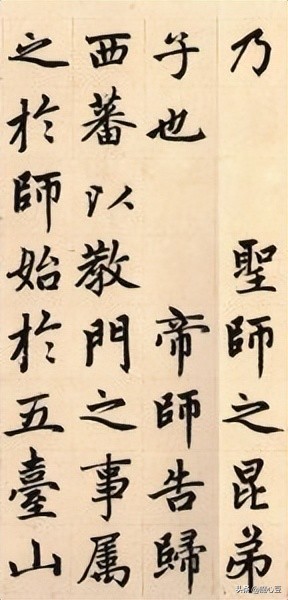 乃 聖師之昆弟
子也 帝師告歸
西蕃以教門之事属
之於師始於五臺山
头条@幽心豆